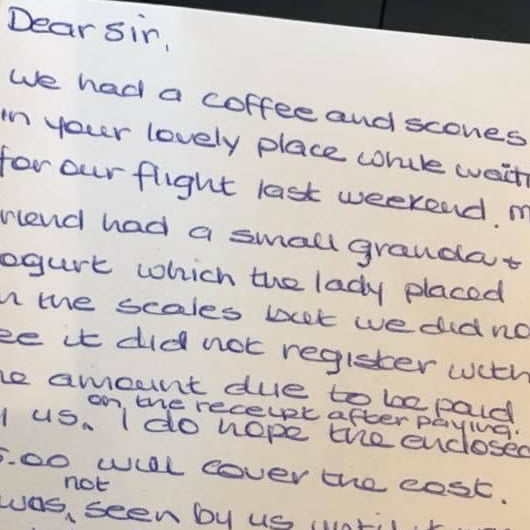 Dear Sir,
We had a coffee and scones
in your lovely place while waiti
for our flight last weekend. m
riend had a small granda +
ogurt which the lady placed
n the scales but we did no
ee it did not register with
he amount due to be paid
on the receipt after paying.
y us. I do hope the enclosed
5.00 will cover the cost.
not
was seen by us until it w